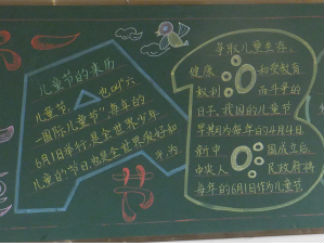 儿童节的来历
儿童节,也叫“六
一国际儿童节”,每年的
6月1日举行,是全世界少年
儿童的节日,也是全世界爱好和
平,为
争取儿童生存、
健康 和受教育
权利 而斗争的
日子。我国的儿童节
早期为每年的4月4日
新中 国成立后,
中央人 民政府将
每年的6月1日作为儿童节
节